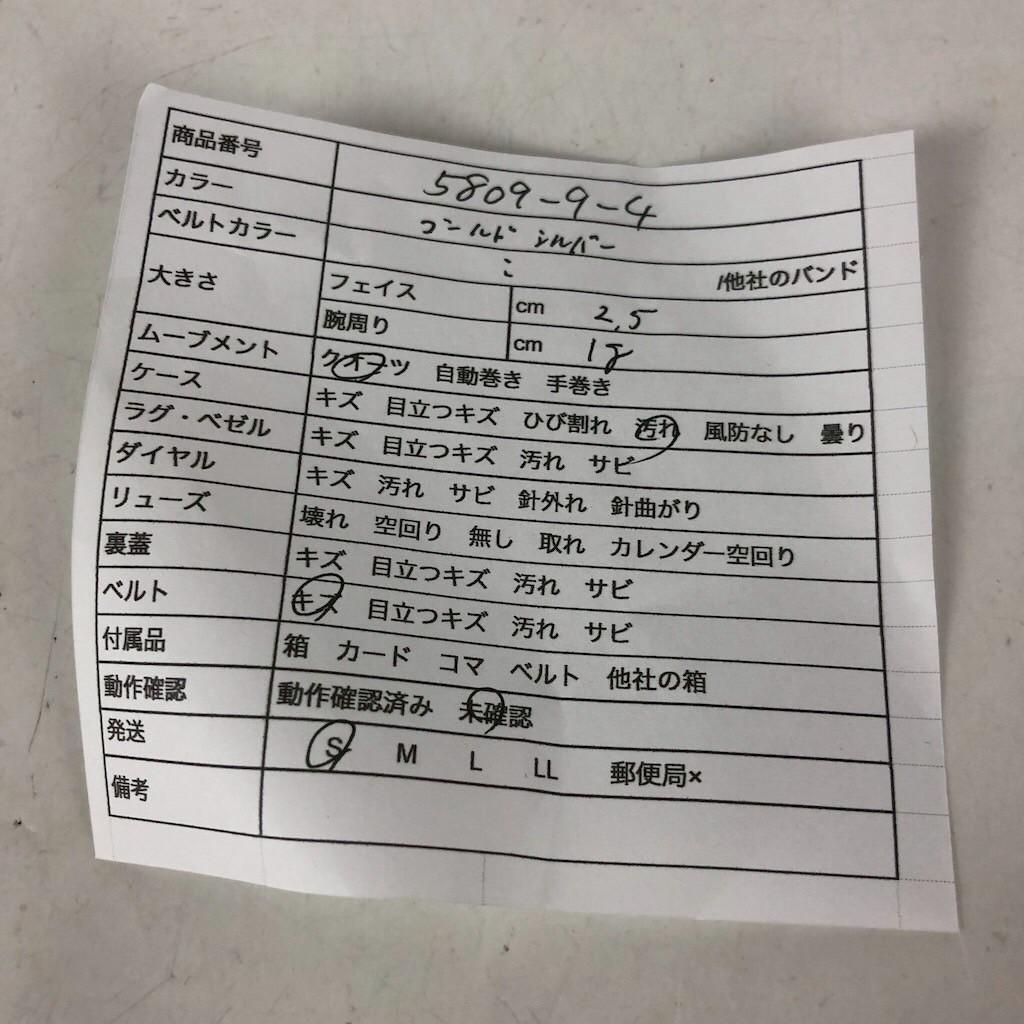 商品番号 5809-9-4
カラー ゴールド シルバー
ベルトカラー /他社のバンド
大きさ フェイス cm 2.5
腕周り cm 18
ムーブメント クオーツ 自動巻き 手巻き
ケース キズ 目立つキズ ひび割れ 汚れ 風防なし 曇り
ラグ・ベゼル キズ 目立つキズ 汚れ サビ
ダイヤル キズ 汚れ サビ 針外れ 針曲がり
リューズ 壊れ 空回り 無し 取れ カレンダー空回り
裏蓋 キズ 目立つキズ 汚れ サビ
ベルト キズ 目立つキズ 汚れ サビ
付属品 箱 カード コマ ベルト 他社の箱
動作確認 動作確認済み 未確認
発送 S M L LL 郵便局×
備考